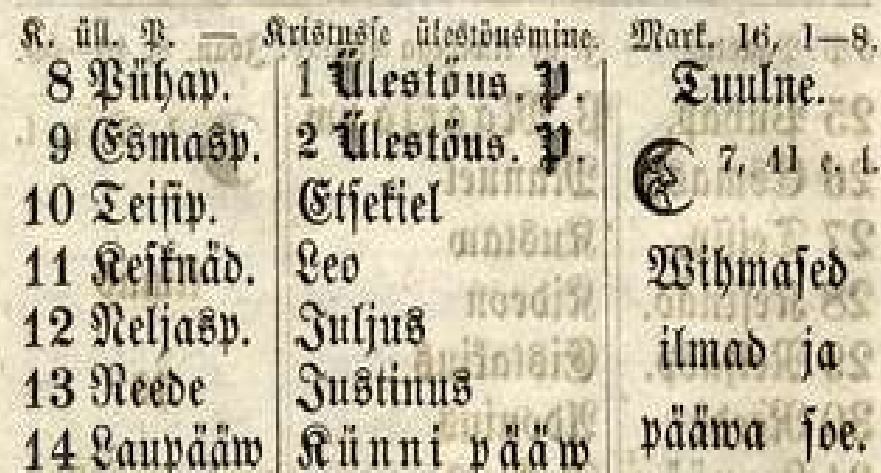 K. üll. P. — Kristusse ülestõusmine. Mark. 16, 1—8.
8 Pühap. 1 Ülestõus. P. Tuulne.
9 Esmasp. 2 Ülestõus. P. 7, 41 e. l.
10 Teisip. Etsekiel
11 Keſknäd. Leo Wihmased
12 Neljasp. Juljus ilmad ja
13 Reede Justinus
14 Laupääw Künni pääw pääwa soe.